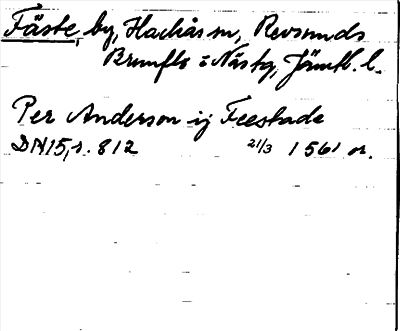 Fäste, by, Hackås sn, Revsunds
Brunflo o Näs tg, Jämtl. l.
Per Anderson ij Feestade
DN15, s. 812 21/3 1561 or.